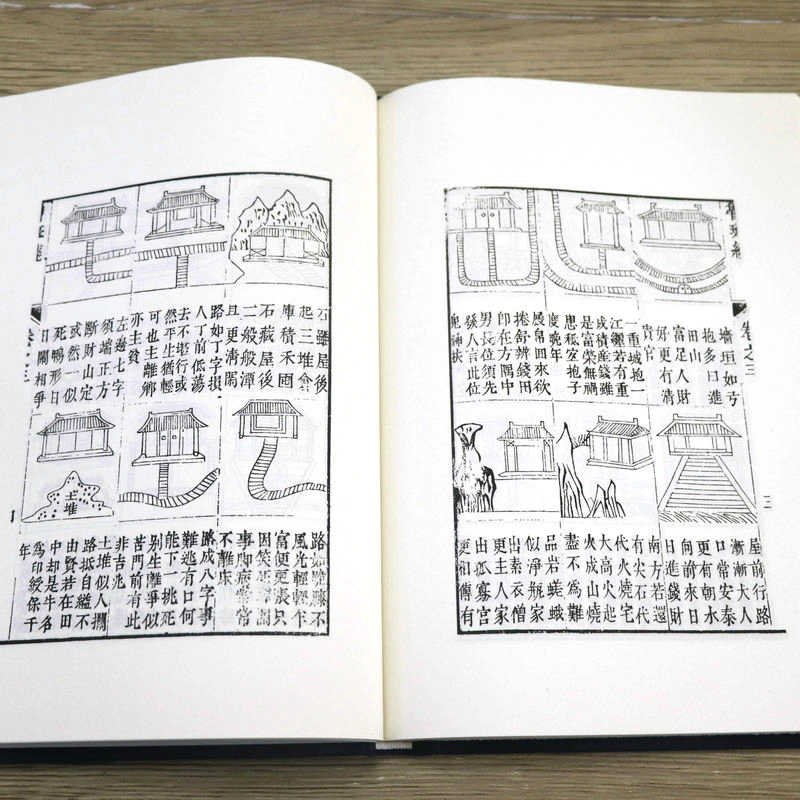 卷之三
三
墻垣如弓
抱多曰進
田山
富足人財
好更有清
貴官
一重城抱一
江纒若有重
成積産錢雖
是富榮無禍
患秪宜抱子
度晚年
展帛回來欲
捲舒辨錢田
卽在方隅中
男長位須先
發人言此位
鬼神扶
屋前行路
漸漸大人
口常安泰
更有朝水
向前來日
日進錢財
南方若還
有尖石代
代火燒宅
大高火起
火成山燒
盡不為難
品岩嵯峨
似淨瓶家
出素衣僧
更主人家
出孤寡宮
更相傳有
卷之三
石雖屋後
起三堆倉
庫積禾囤
石藏屋後
一般般潭
且更清閑
路如丁字損
人丁前低蕩
去不行或
然平生猶輕
可也主離鄉
亦主貧
左邊七字
須端正方
斷財山定
或然一似
死鴨形日
日閙相爭
路如跪膝不
風光輕輕乍
富便更張只
因笑死
事脚病常常
不離床
路成八字事
難逃有口何
能下一挑死
别生離爭似
苦門前有此
非吉兆
土堆
土堆似人攔
路抵自縊不
由賢若在田
中却是牛名
為印綬保千
年